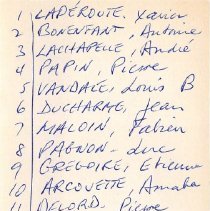 1 LAPÉROUTE. Xavier
2 BONENFANT, Antoine
3 LACHAPELLE, André
4 PAPIN, Pierre
5 VANDALE, Louis B
6 DUCHARME, Jean
7 MALOIN, Fabien
8 PAGNON - Luc
9 GREGOIRE, Etienne
10 ARCOUETTE, Amable
11 DELORD. Pierre